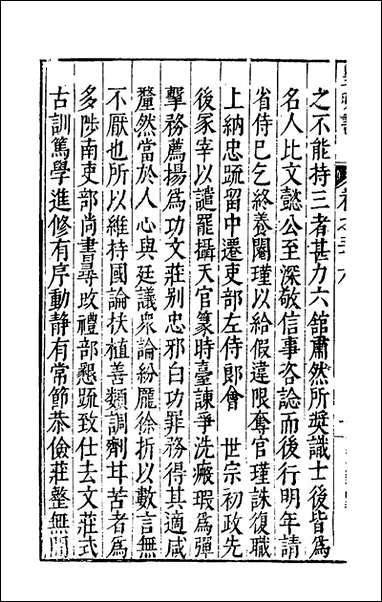 之不能持三者甚力六館肅然所奬識士後皆爲
名人比文懿公至深敬信事咨訟而後行明年請
省侍已乞終養閹瑾以給假違限奪官瑾誅復職
上納忠疏留中遷吏部左侍郎會　世宗初政先
後冢宰以譴罷攝天官篆時臺諫爭洗瘢瑕爲彈
擊務薦揚爲功文莊别忠邪白功罪務得其適咸
釐然當於人心與廷議衆論紛厖徐折以數言無
不厭也所以維持國論扶植善類調劑甘苦者爲
多陟南吏部尚書尋改禮部懇疏致仕去文莊式
古訓篤學進修有序動靜有常節恭儉莊整無閒